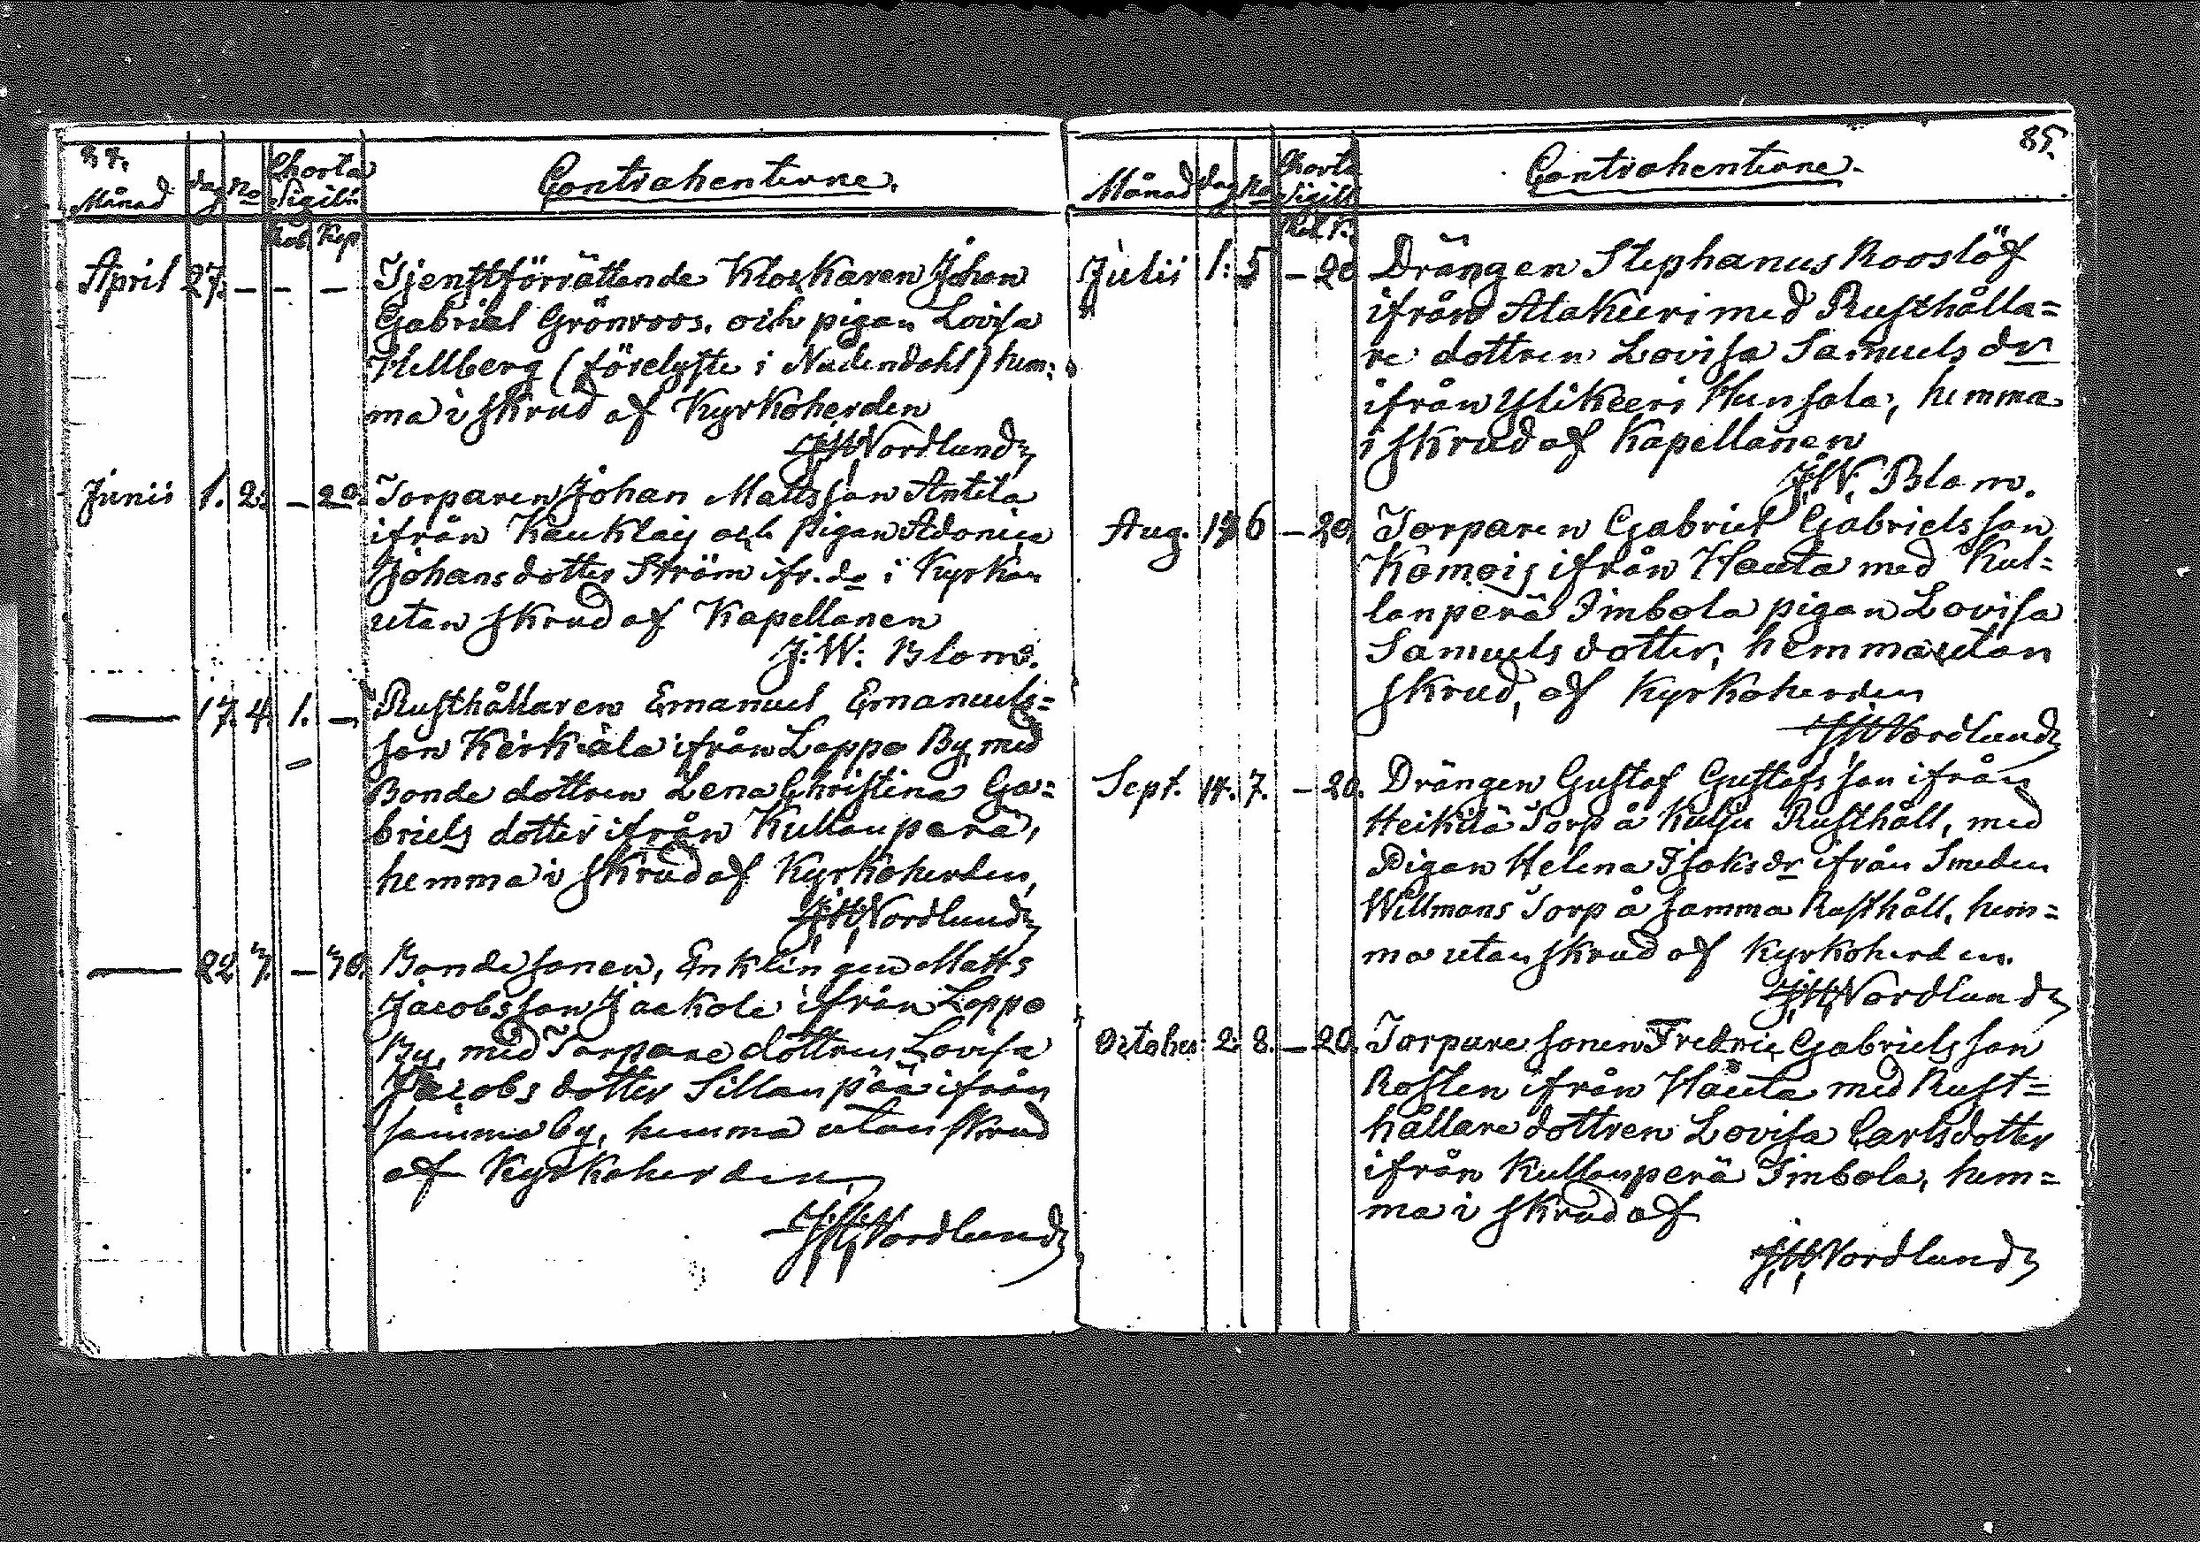 84.
Månad dag No Chorta Sigill: Contrahenterne.
Rub. Kop.
April 27. – – – Tjenstförrättande Klockaren Johan
Gabriel Grönroos, och pigan Lovisa
Hellberg (förelyste i Nådendahl) hem:
ma i skrud af Kyrkoherden
Nordlund
Junii 1. 2. – 20. Torparen Johan Mattsson Antila
ifrån Kauklais och Pigan Adonica
Johansdotter Ström ifr. do i Kyrkan
utan skrud af Kapellanen
J: W: Blom.
— 17. 4. 1. – Rusthållaren Emanuel Emanuels=
son Kerkiala ifrån Loppo By, med
Bonde dottren Lena Christina Ga=
briels dotter ifrån Kullanperä,
hemma i skrud af Kyrkoherden,
Nordlund
— 22 3. – 30. Bondesonen, Enklingen Matts
Jacobsson Jackola ifrån Loppo
By, med Torpare dottren Lovisa
Jacobs dotter Sillanpää ifrån
samma by, hemma utan skrud
af Kyrkoherden
Nordlund
85.
Månad dag No Chorta Sigill Contrahenterne.
Rub. K.
Julii 1. 5 – 20 Drängen Stephanus Rooslöf
ifrån Alakeeri med Rusthålla=
re dottren Lovisa Samuels dr
ifrån Ylikeeri Hunsala, hemma
i skrud af Kapellanen
J. W. Blom.
Aug. 6 – 20. Torparen Gabriel Gabrielsson
Komois ifrån Hauta med Kul=
lanperä Simbola pigan Lovisa
Samuels dotter, hemma utan
skrud, af Kyrkoherden
Nordlund
Sept. 14. 7. – 20. Drängen Gustaf Gustafsson ifrån
Heikilä Torp å Kulju Rusthåll, med
Pigan Helena Isaksdr ifrån Smeden
Willmans Torp å samma Rusthåll, hem=
ma utan skrud af Kyrkoherden.
Nordlund
October 2. 8. – 20. Torpare sonen Fredric Gabrielsson
Rosten ifrån Hauta med Rust=
hållare dottren Lovisa Carlsdotter
ifrån Kullanperä Simbola, hem=
ma i skrud af
Nordlund